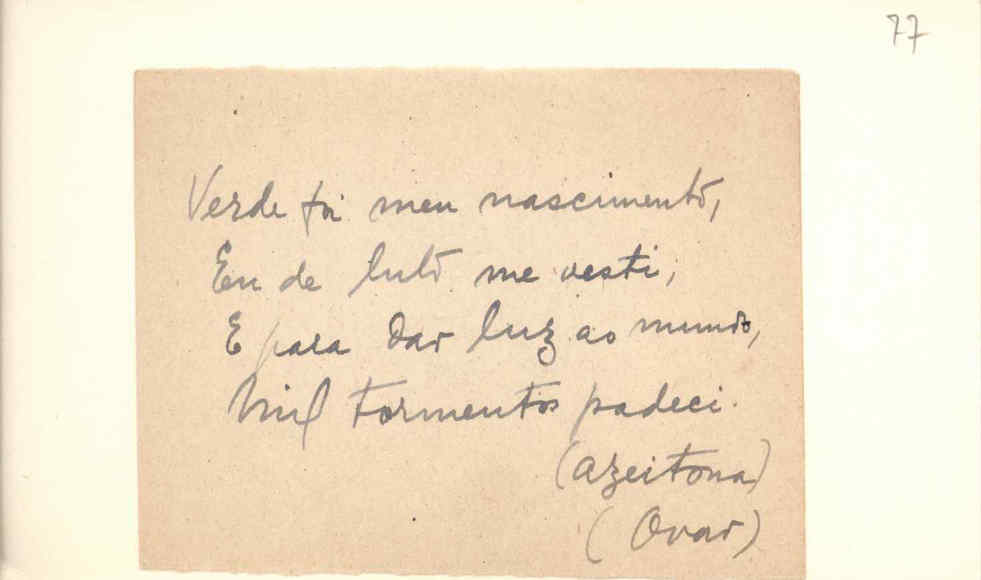 77
Verde foi meu nascimento,
Eu de luto me vesti,
E para dar luz ao mundo,
Mil tormentos padeci.
(azeitona)
(Ovar)